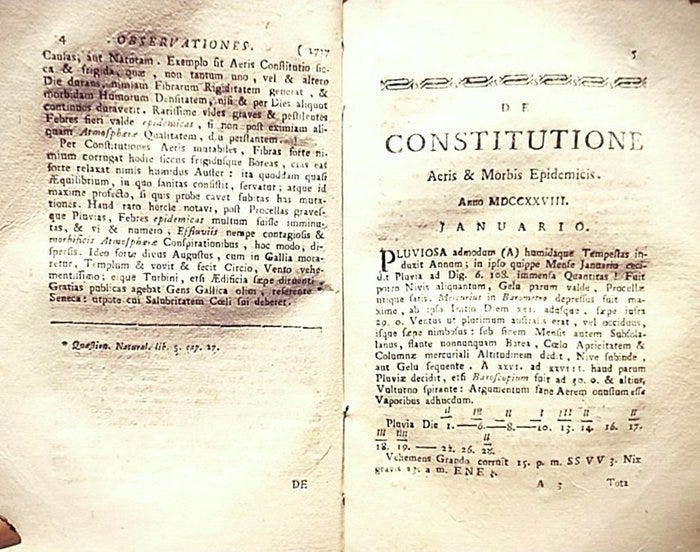 4 OBSERVATIONES. ( 1727
Causas, aut Naturam. Exemplo sit Aeris Constitutio sic-
ca & frigida, quæ, non tantum uno, vel & altero
Die durans, nimiam Fibrarum Rigiditatem generat, &
morbidam Humorum Densitatem, nisi & per Dies aliquot
continuos duraverit. Rarissime vides graves & pestilentes
Febres fieri valde epidemicas, si non post eximiam ali-
quam Atmosphæræ Qualitatem, diu perstantem.
Per Constitutiones Aeris mutabiles, Fibras forte ni-
mium corrugat hodie siccus frigidusque Boreas, cras eas
forte relaxat nimis humidus Auster: ita quodam quasi
Æquilibrium, in quo sanitas consistit, servatur; atque id
maxime profecto, si quis probe cavet subitas has muta-
tiones. Haud raro hercle notavi, post Procellas graves-
que Pluvias, Febres epidemicas multum fuisse imminu-
tas, & vi & numero, Effluviis nempe contagiosis &
morbificis Atmosphæræ Conspirationibus, hoc modo, di-
spersis. Ideo forte divus Augustus, cum in Gallia mora-
retur, Templum & vovit & fecit Circio, Vento vehe-
mentissimo; eique Turbini, etsi Ædificia sæpe diruenti,
Gratias publicas agebat Gens Gallica olim, referente *
Seneca: utpote cui Salubritatem Cœli sui deberet.
* Quæstion. Natural. lib. 5. cap. 17.
DE
5
DE
CONSTITUTIONE
Aeris & Morbis Epidemicis.
Anno MDCCXXVIII.
JANUARIO.
PLUVIOSA admodum (A) humidaque Tempestas in-
duxit Annum; in ipso quippe Mense Januario ceci-
dit Pluvia ad Dig. 6. 108. immensa Quantitas! Fuit
porro Nivis aliquantum, Gelu parum valde, Procellæ
utique satis. Mercurius in Barometro depressus fuit ma-
xime, ab ipso Initio Diem XXI. adusque, sæpe infra
29. 0. Ventus ut plurimum australis erat, vel occiduus,
isque sæpe nimbosus: sub finem Mensis autem Subso-
lanus, flante nonnunquam Borea, Cœlo Apricitatem &
Columnæ mercuriali Altitudinem dedit, Nive subinde,
aut Gelu sequente. A XXVI. ad XXVIII. haud parum
Pluviæ decidit, etsi Baroscopium fuit ad 30. 0. & altius,
Vulturno spirante: Argumentum sane Aerem onustum esse
Vaporibus adhucdum.
II III II I III II II
Pluvia Die 1.—6.—8.—10. 13. 14. 16. 17.
III IIII II
18. 19. — 22. 26. 28.
Vehemens Grando corruit 15. p. m. SS VV 3. Nix
gravis 23. a m. ENE 3.
A 3 Tota